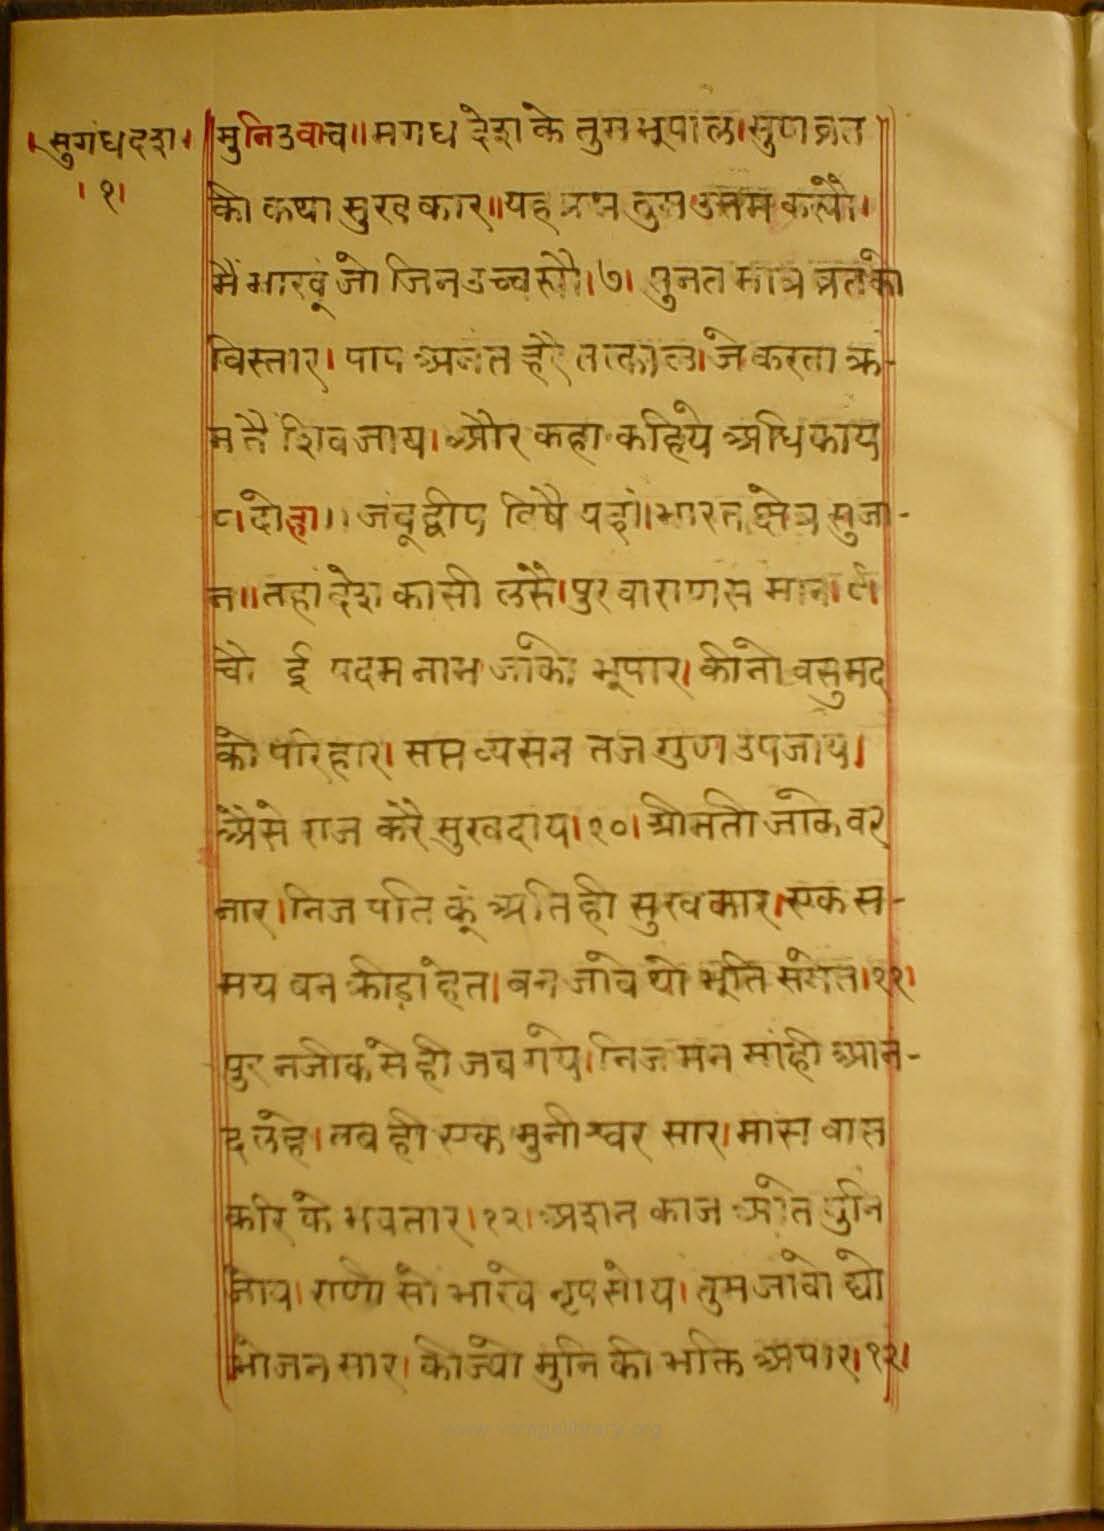 । सुगंधदश।
। १।
मुनिउवाच॥ मगध देश के तुम भूपाल। सुण व्रत
की कथा सुखकार॥ यह प्रश्न तुम उत्तम कर्यो।
मैं भाखूं जो जिन उच्चर्यौ। ७। सुनत मात्र व्रत को
विस्तार। पाप अनंत हरै तत्काल। जे करता क्र-
म तैं शिव जाय। और कहा कहिये अधिकाय
८। दोहा।। जंबूद्वीप विषै यहां॥ भारत क्षेत्र सुजा-
न॥ तहां देश कासी लसै। पुर वाराणस मान। ९।
चौ ई पदम नाभ जाको भूपार। कीनो वसुमद
को परिहार। सप्त व्यसन तज गुण उपजाय।
अैसे राज करै सुखदाय। १०। श्रीमती जाके वर
नार। निज पति कूं अति ही सुखकार। एक स-
मय बन क्रीडा हेत। बन जावे थो भूति समेत। ११।
पुर नजीक से ही जब गये। निज मन मांही आनं-
द लहे। तब ही एक मुनीश्वर सार। मास वास
करि के भवतार। १२। अशन काज आते मुनि
जोय। राणी सों भाखे नृप सोय। तुम जावो द्यो
भोजन सार। कीज्यो मुनि की भक्ति अपार। १३।